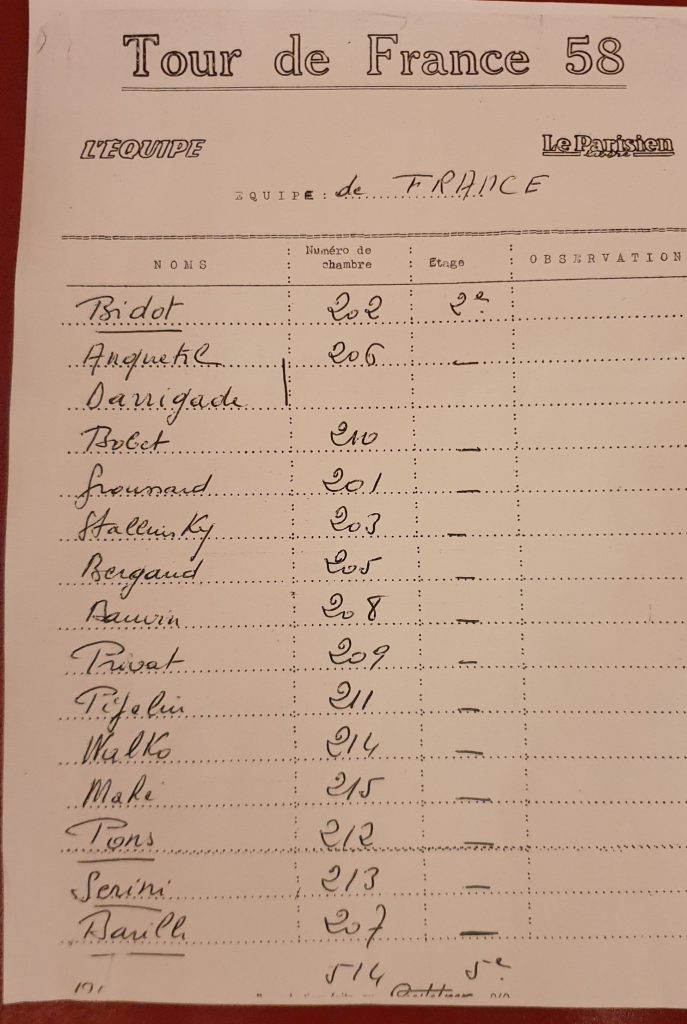 Tour de France 58
L'EQUIPE Le Parisien
EQUIPE: de FRANCE
NOMS Numéro de chambre Etage OBSERVATION
Bidot 202 2e
Anquetil 206 —
Darrigade
Bobet 210 —
Groussard 201 —
Stallinsky 203 —
Bergaud 205 —
Bauvin 208 —
Privat 209 —
Pipelin 211 —
Walko 214 —
Mahé 215 —
Pons 212 —
Serini 213 —
Barilli 207 —
514 5e